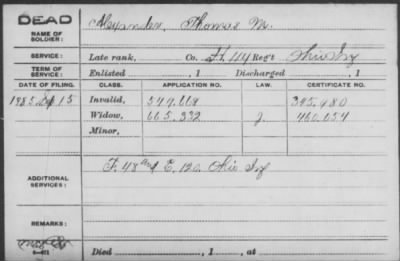 DEAD
NAME OF SOLDIER:
Alexander, Thomas M.
SERVICE:
Late rank, Co. H, 114 Reg't Ohio Inf
TERM OF SERVICE:
Enlisted , 1 Discharged , 1
DATE OF FILING. CLASS. APPLICATION NO. LAW. CERTIFICATE NO.
1885 15 Invalid, 549.668 345.980
Widow, 665.332 J. 460.054
Minor,
ADDITIONAL SERVICES:
F. 48 and E. 120. Ohio Inf
REMARKS:
Died , 1 , at